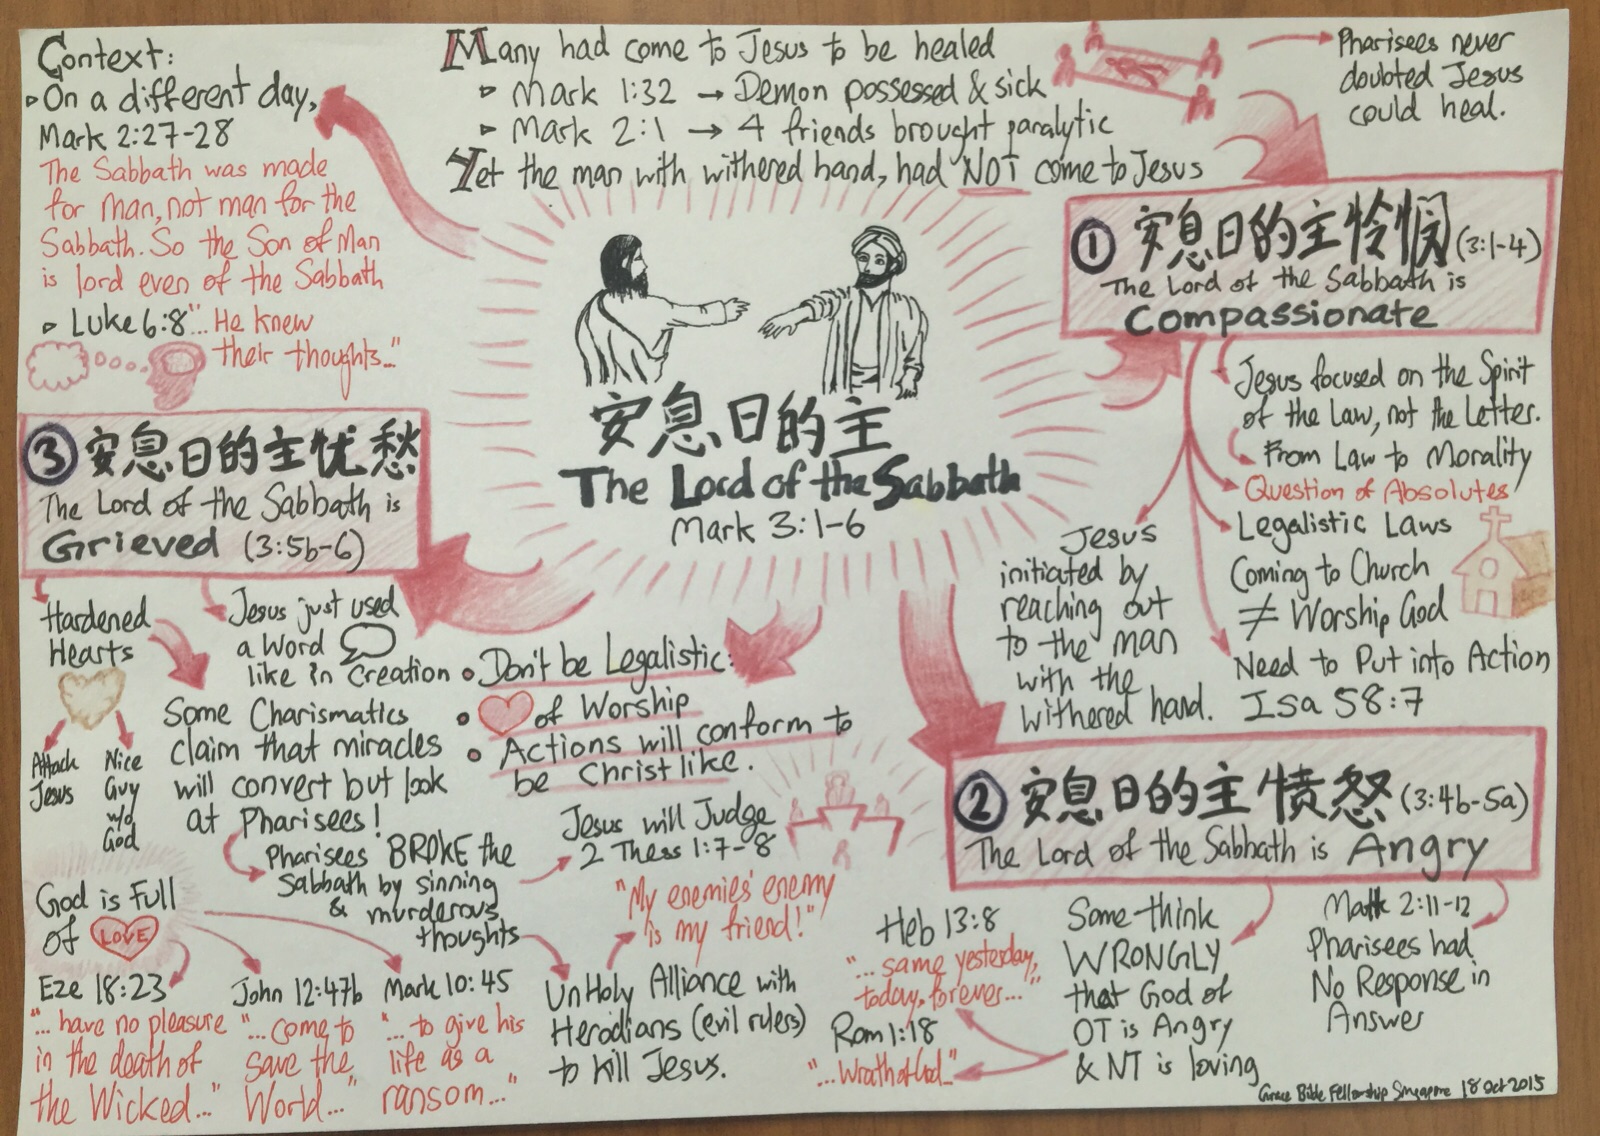 Context:
▹ On a different day,
Mark 2:27-28
The Sabbath was made
for man, not man for the
Sabbath. So the Son of Man
is lord even of the Sabbath
▹ Luke 6:8 "... He knew
their thoughts..."
Many had come to Jesus to be healed
▹ Mark 1:32 → Demon possessed & sick
▹ Mark 2:1 → 4 friends brought paralytic
Yet the man with withered hand, had NOT come to Jesus
Pharisees never
doubted Jesus
could heal.
安息日的主
The Lord of the Sabbath
Mark 3:1-6
① 安息日的主怜悯 (3:1-4)
The Lord of the Sabbath is
Compassionate
Jesus focused on the Spirit
of the Law, not the Letter.
From Law to Morality
Question of Absolutes
Legalistic Laws
Coming to Church
≠ Worship God
Need to Put into Action
Isa 58:7
Jesus
initiated by
reaching out
to the man
with the
withered hand.
② 安息日的主愤怒 (3:4b-5a)
The Lord of the Sabbath is Angry
Matt 2:11-12
Pharisees had
No Response in
Answer
Some think
WRONGLY
that God of
OT is Angry
& NT is loving
Heb 13:8
"... same yesterday,
today, forever..."
Rom 1:18
"...Wrath of God..."
③ 安息日的主忧愁
The Lord of the Sabbath is
Grieved (3:5b-6)
Hardened
Hearts
Attack
Jesus
Nice
Guy
w/o
God
Jesus just used
a Word
like in Creation
Some Charismatics
claim that miracles
will convert but look
at Pharisees!
Pharisees BROKE the
Sabbath by sinning
& murderous
thoughts
Jesus will Judge
2 Thess 1:7-8
"My enemies' enemy
is my friend!"
UnHoly Alliance with
Herodians (evil rulers)
to kill Jesus.
God is Full
of LOVE
Eze 18:23
"... have no pleasure
in the death of
the Wicked..."
John 12:47b
"...come to
save the
World..."
Mark 10:45
"...to give his
life as a
ransom..."
• Don't be Legalistic:
• of Worship
• Actions will conform to
be Christ like.
Grace Bible Fellowship Singapore 18 Oct 2015